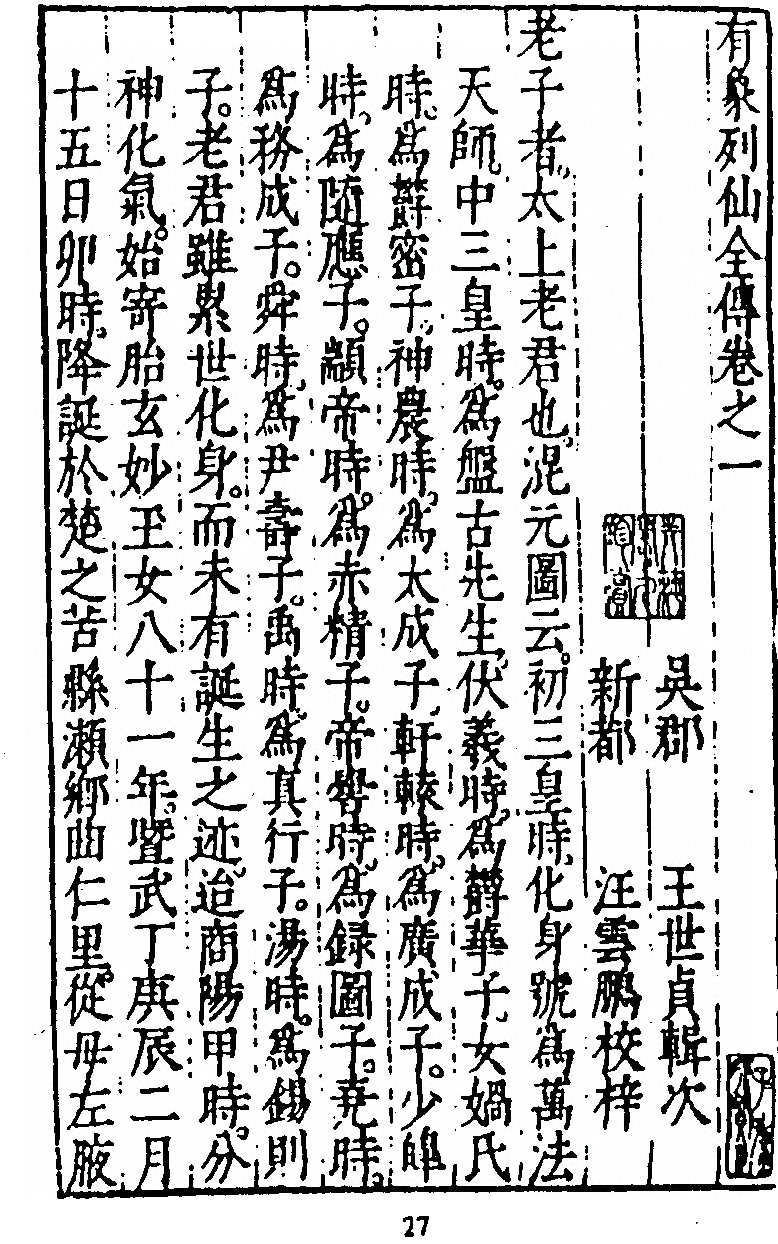 有象列仙全傳卷之一
吳郡 王世貞輯次
新都 汪雲鵬校梓
老子者。太上老君也。混元圖云。初三皇時。化身號為萬法
天師。中三皇時。為盤古先生。伏羲時。為欝華子。女媧氏
時。為欝密子。神農時。為太成子。軒轅時。為廣成子。少皥
時。為隨應子。顓帝時。為赤精子。帝嚳時。為録圖子。堯時。
為務成子。舜時。為尹壽子。禹時。為真行子。湯時。為錫則
子。老君雖累世化身。而未有誕生之迹。迨商陽甲時。分
神化氣。始寄胎玄妙玉女八十一年。暨武丁庚辰二月
十五日卯時。降誕於楚之苦縣瀬鄉曲仁里。從母左腋
27